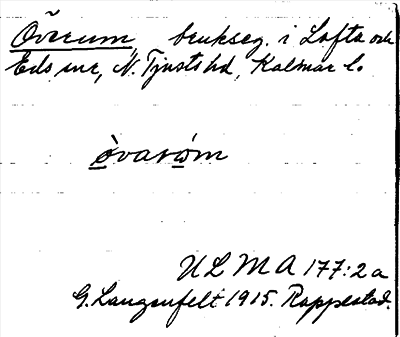 Överum, brukseg. i Lofta och
Eds snr, N. Tjusts hd, Kalmar l.
òvarøm
ULMA 177:2a
G. Langenfelt 1915. Rappestad.